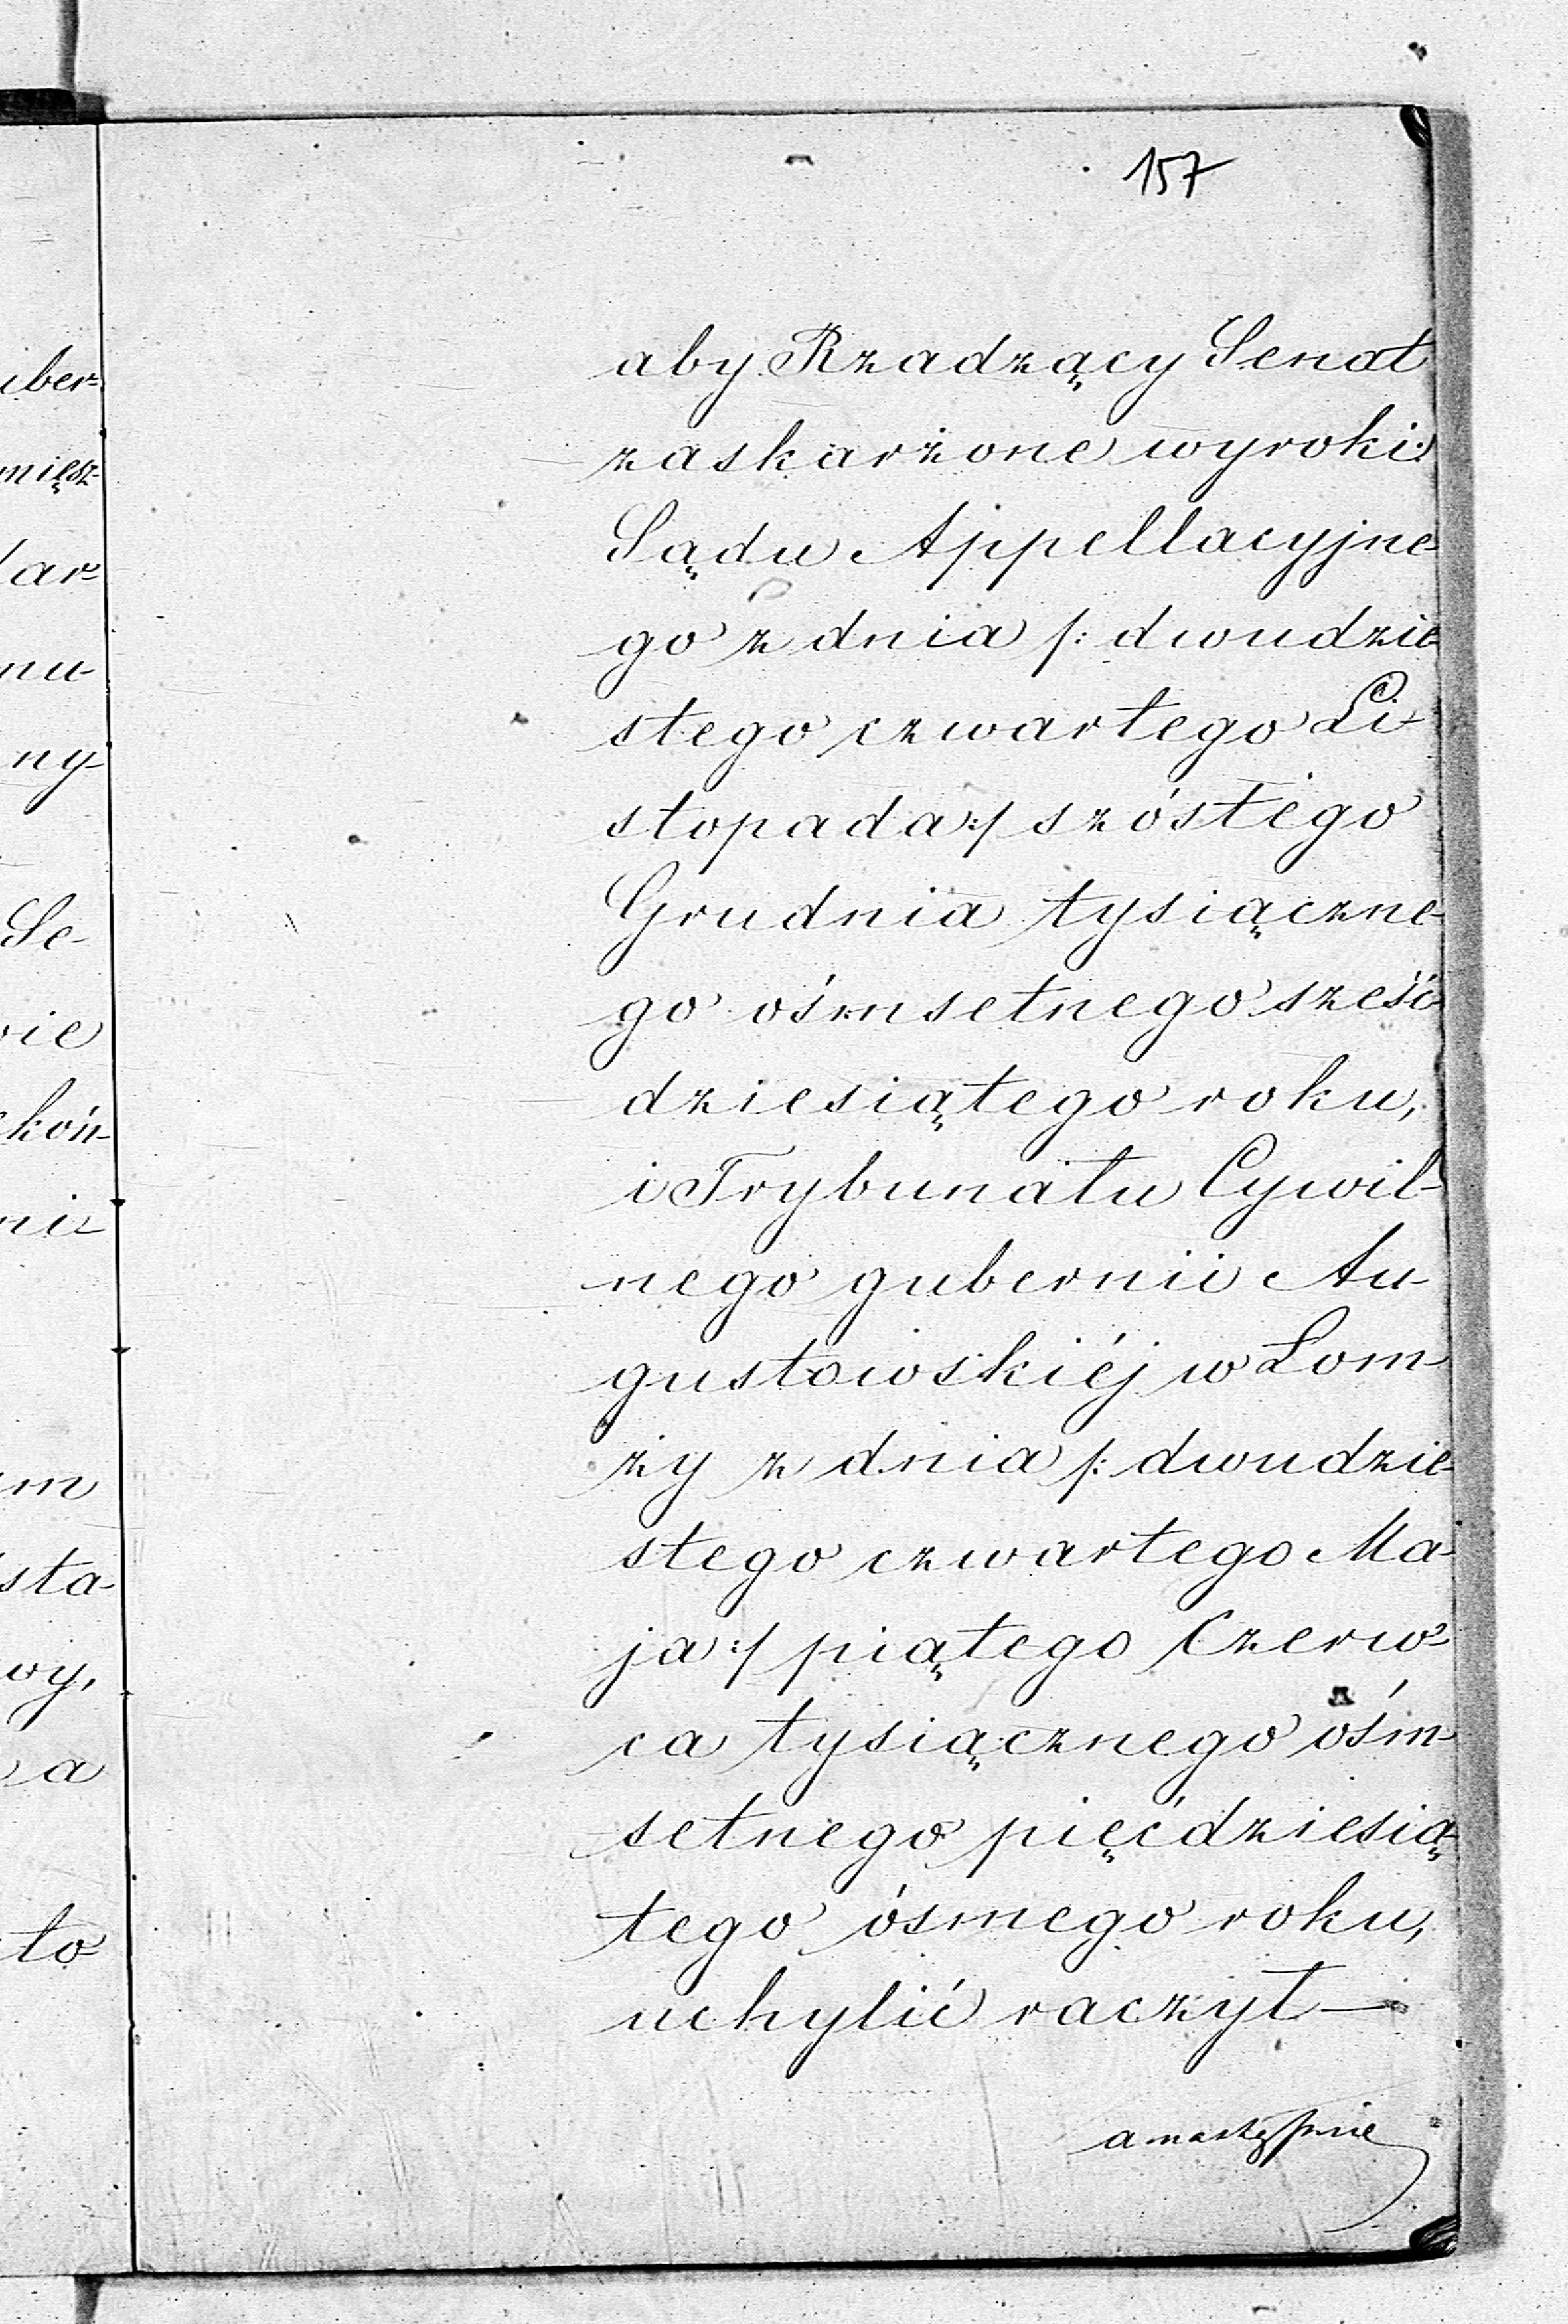 157
aby Rzadzący Senat
zaskarżone wyroki
Sądu Appellacyjne-
go z dnia /: dwudzie-
stego czwartego Li-
stopada :/ szóstego
Grudnia tysiączne-
go ośmsetnego sześć-
dziesiątego roku,
i Trybunału Cywil-
nego gubernii Au-
gustowskiéj w Łom-
ży z dnia /: dwudzie-
stego czwartego Ma-
ja :/ piątego Czerw-
ca tysiącznego ośm-
setnego pięćdziesią-
tego ósmego roku,
uchylić raczył —
a następnie